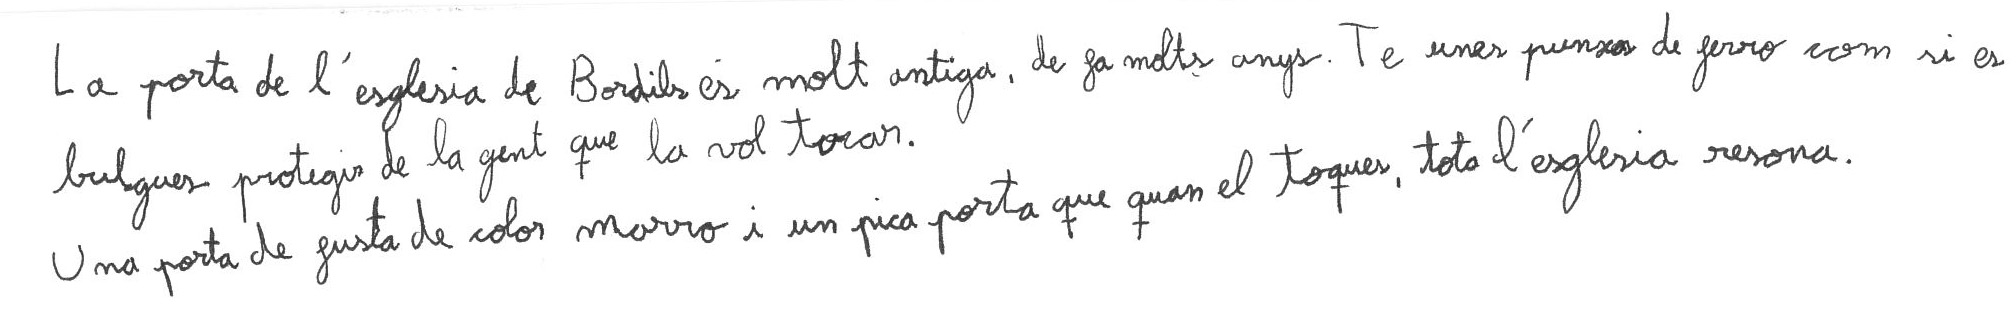 La porta de l'esglesia de Bordils és molt antiga, de fa molts anys. Te unes punxes de ferro com si es
bulgues protegir de la gent que la vol tocar.
Una porta de fusta de color marro i un pica porta que quan el toques, tota l'esglesia resona.